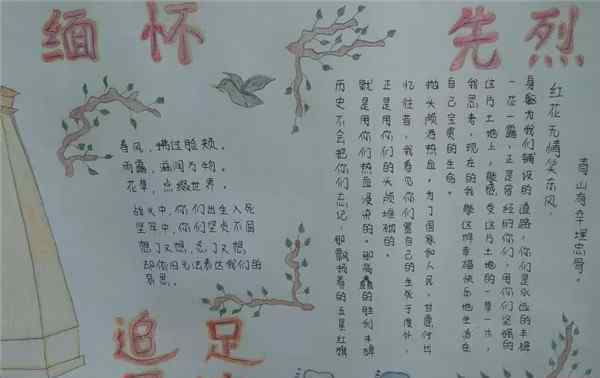 缅怀 先烈
春风，拂过脸颊。
雨露，滋润万物。
花草，点缀世界。
战火中，你们出生入死
坚牢中，你们坚贞不屈
想了又想，忘了又想，
却依旧无法表达我们的
哀思。
青山有幸埋忠骨。
红花无情笑东风，
身躯为我们铺设的道路，你们是永远的丰碑
一花一露，正是曾经的你们，用你们坚强的
这片土地上，感受这片土地的一草一木，
我思考，现在的我能这样幸福快乐地生活在
自己宝贵的生命。
抛头颅洒热血，为了国家和人民，甘愿付出
忆往昔，我看见你们置自己的生死于度外，
正是用你们的头颅堆砌的。
就是用你们热血浸染的。那高矗的胜利丰碑
历史不会把你们忘记，那飘扬着的五星红旗
追 足